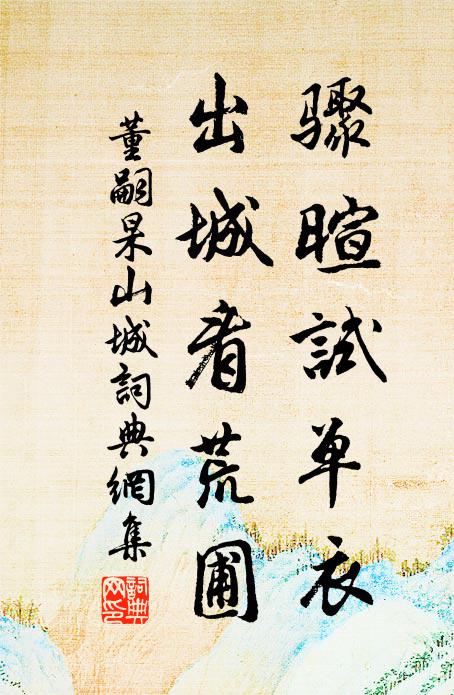 骤暄試单衣
出城看荒圃
董嗣杲山城詞典網集
詞典